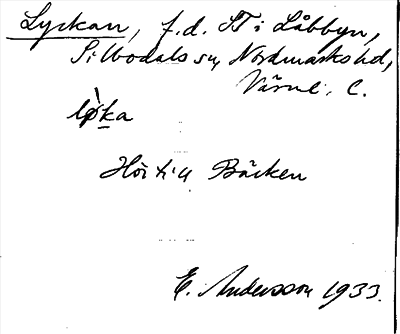 Lyckan, f.d. ST i Låbbyn,
Silbodals sn, Nordmarks hd,
Värml. C.
lø̀ka
Hör till Bäcken
E. Andersson 1933.